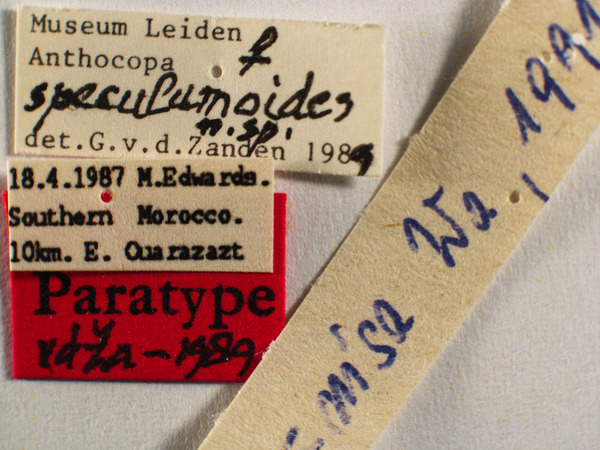 Museum Leiden
Anthocopa f
speculumoides
n.sp.
det.G.v.d.Zanden 1989
18.4.1987 M.Edwards.
Southern Morocco.
10km. E. Ouarazazt
Paratype
vdZa-1989
misa Wa, 1991